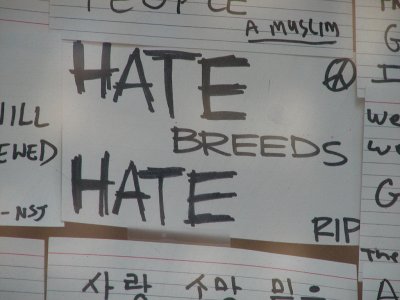 PEOPLE
A MUSLIM
HATE
BREEDS
HATE
RIP
EWED
-NSJ
we
we
G
The
사랑 소망 믿음